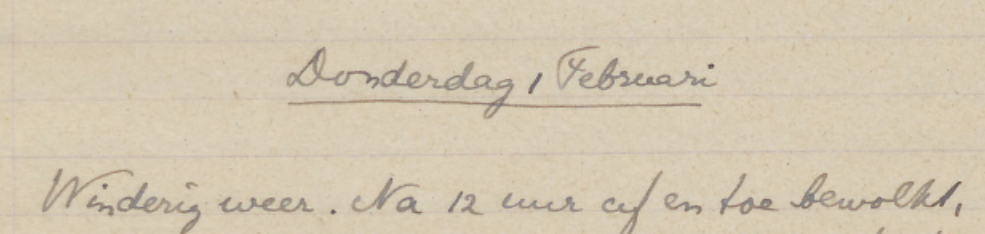 Donderdag 1 Februari
Winderig weer. Na 12 uur af en toe bewolkt,